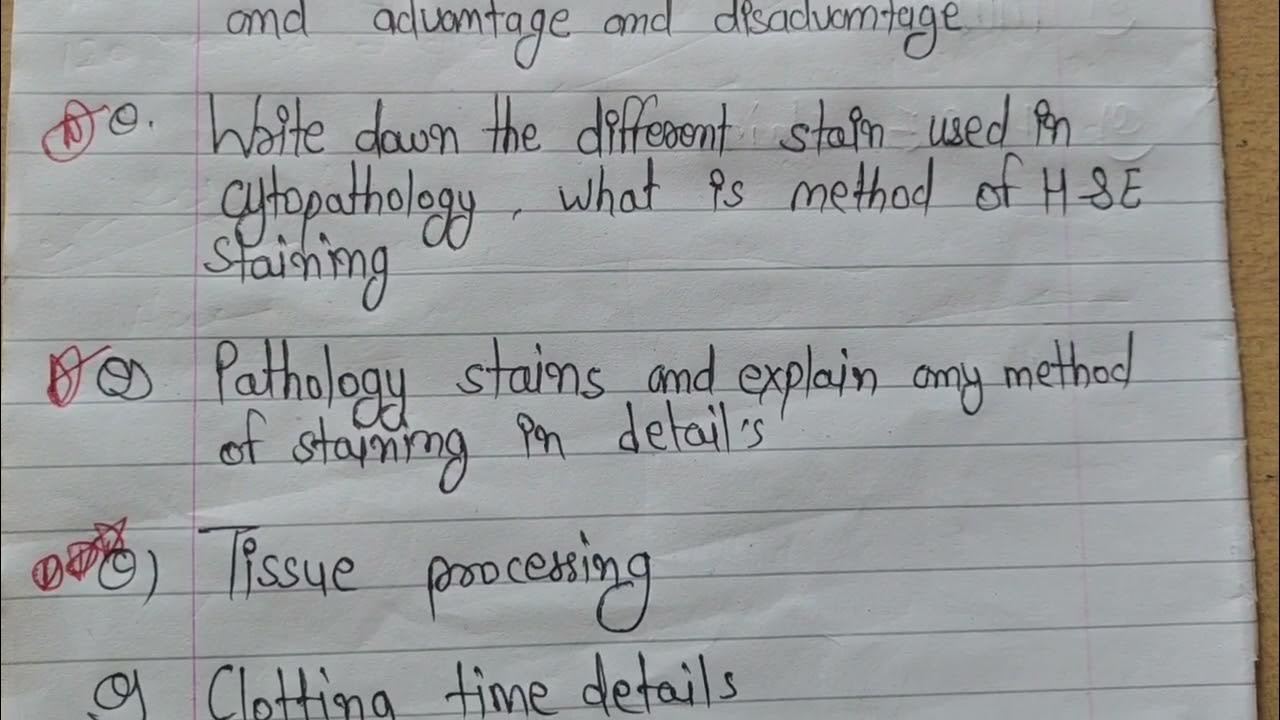 and advantage and disadvantage
Q. Write down the different stain used in
cytopathology, what is method of H & E
staining
Q) Pathology stains and explain any method
of staining in detail's
Q) Tissue processing
Q) Clotting time details